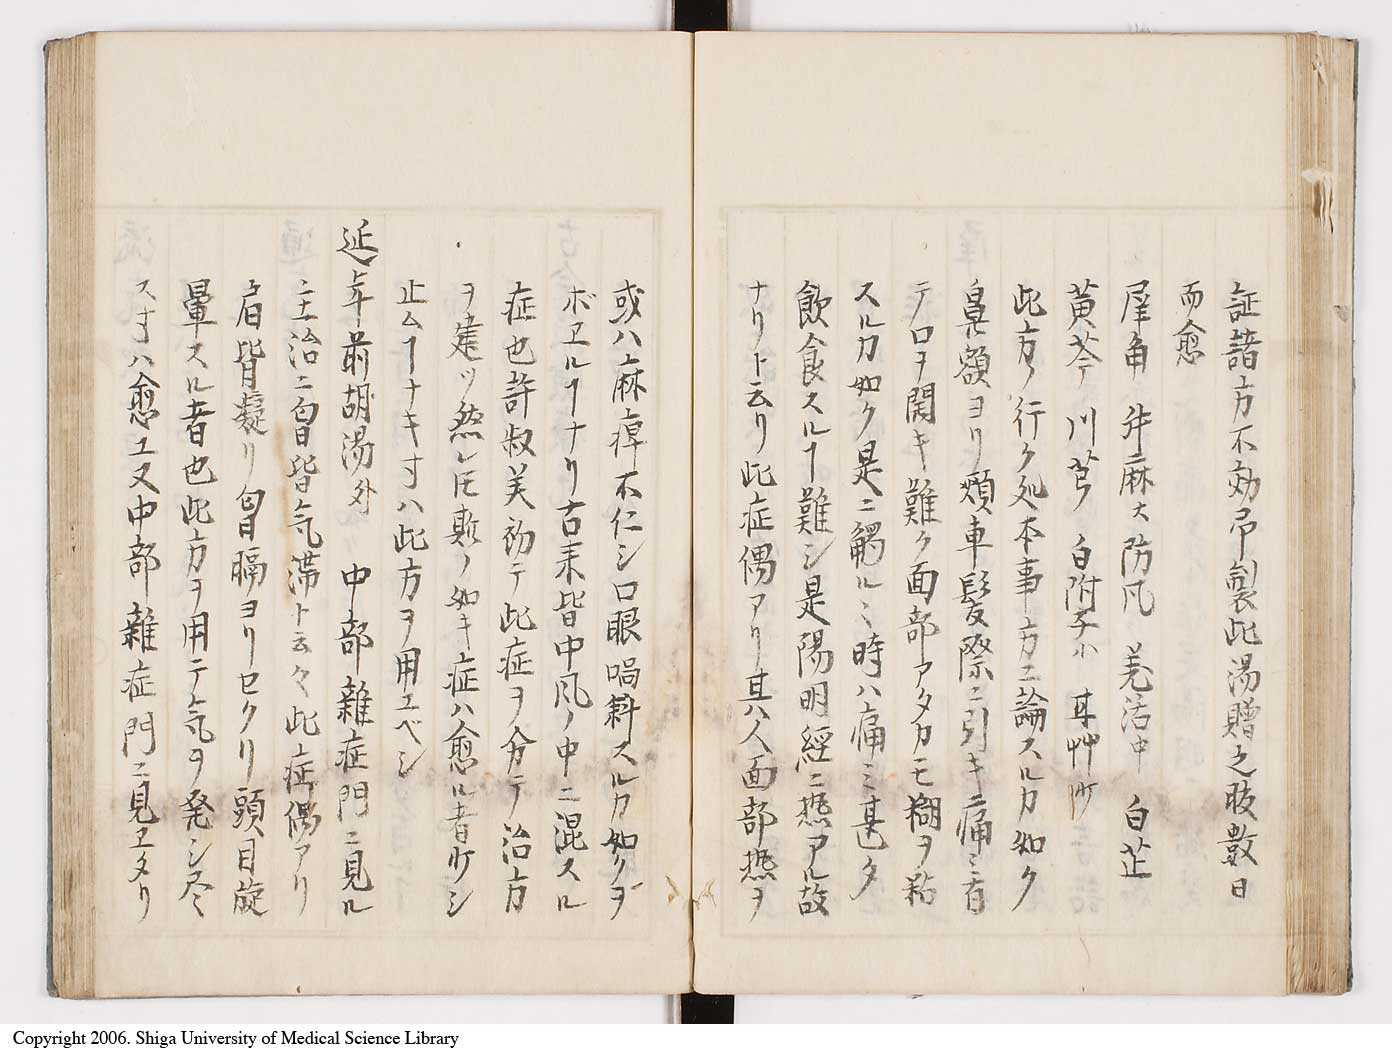 証諸方不効予製此湯贈之服数日
而愈
犀角 升麻大 防風 羌活中 白芷
黄芩 川芎 白附子小 甘艸少
此方ノ行ク処本事方ニ論スルカ如ク
鼻額ヨリ頬車髪際ニ引キ痛ミ言
テ口ヲ開キ難ク面部アタカモ糊ヲ粘
スルカ如ク是ニ觸ルヽ時ハ痛ミ甚タ
飲食スルヿ難シ是陽明經ニ熱アル故
ナリト云リ此症偶アリ其人面部熱ヲ
或ハ麻痺不仁シ口眼喎斜スルカ如クヲ
ボヱルヿナリ古来皆中風ノ中ニ混スル
症也許叔美初テ此症ヲ分テ治方
ヲ建ツ然レ𪜈斯ノ如キ症ハ愈ル者少シ
止ムヿナキ寸ハ此方ヲ用ユベシ
延年前胡湯外 中部雜症門ニ見ル
主治ニ胷皆気滞ト云々此症偶アリ
肩背凝リ胷膈ヨリセクリ頭目旋
暈スル者也此方ヲ用テ気ヲ発シ尽
ス寸ハ愈ユ又中部雜症門ニ見ヱタリ